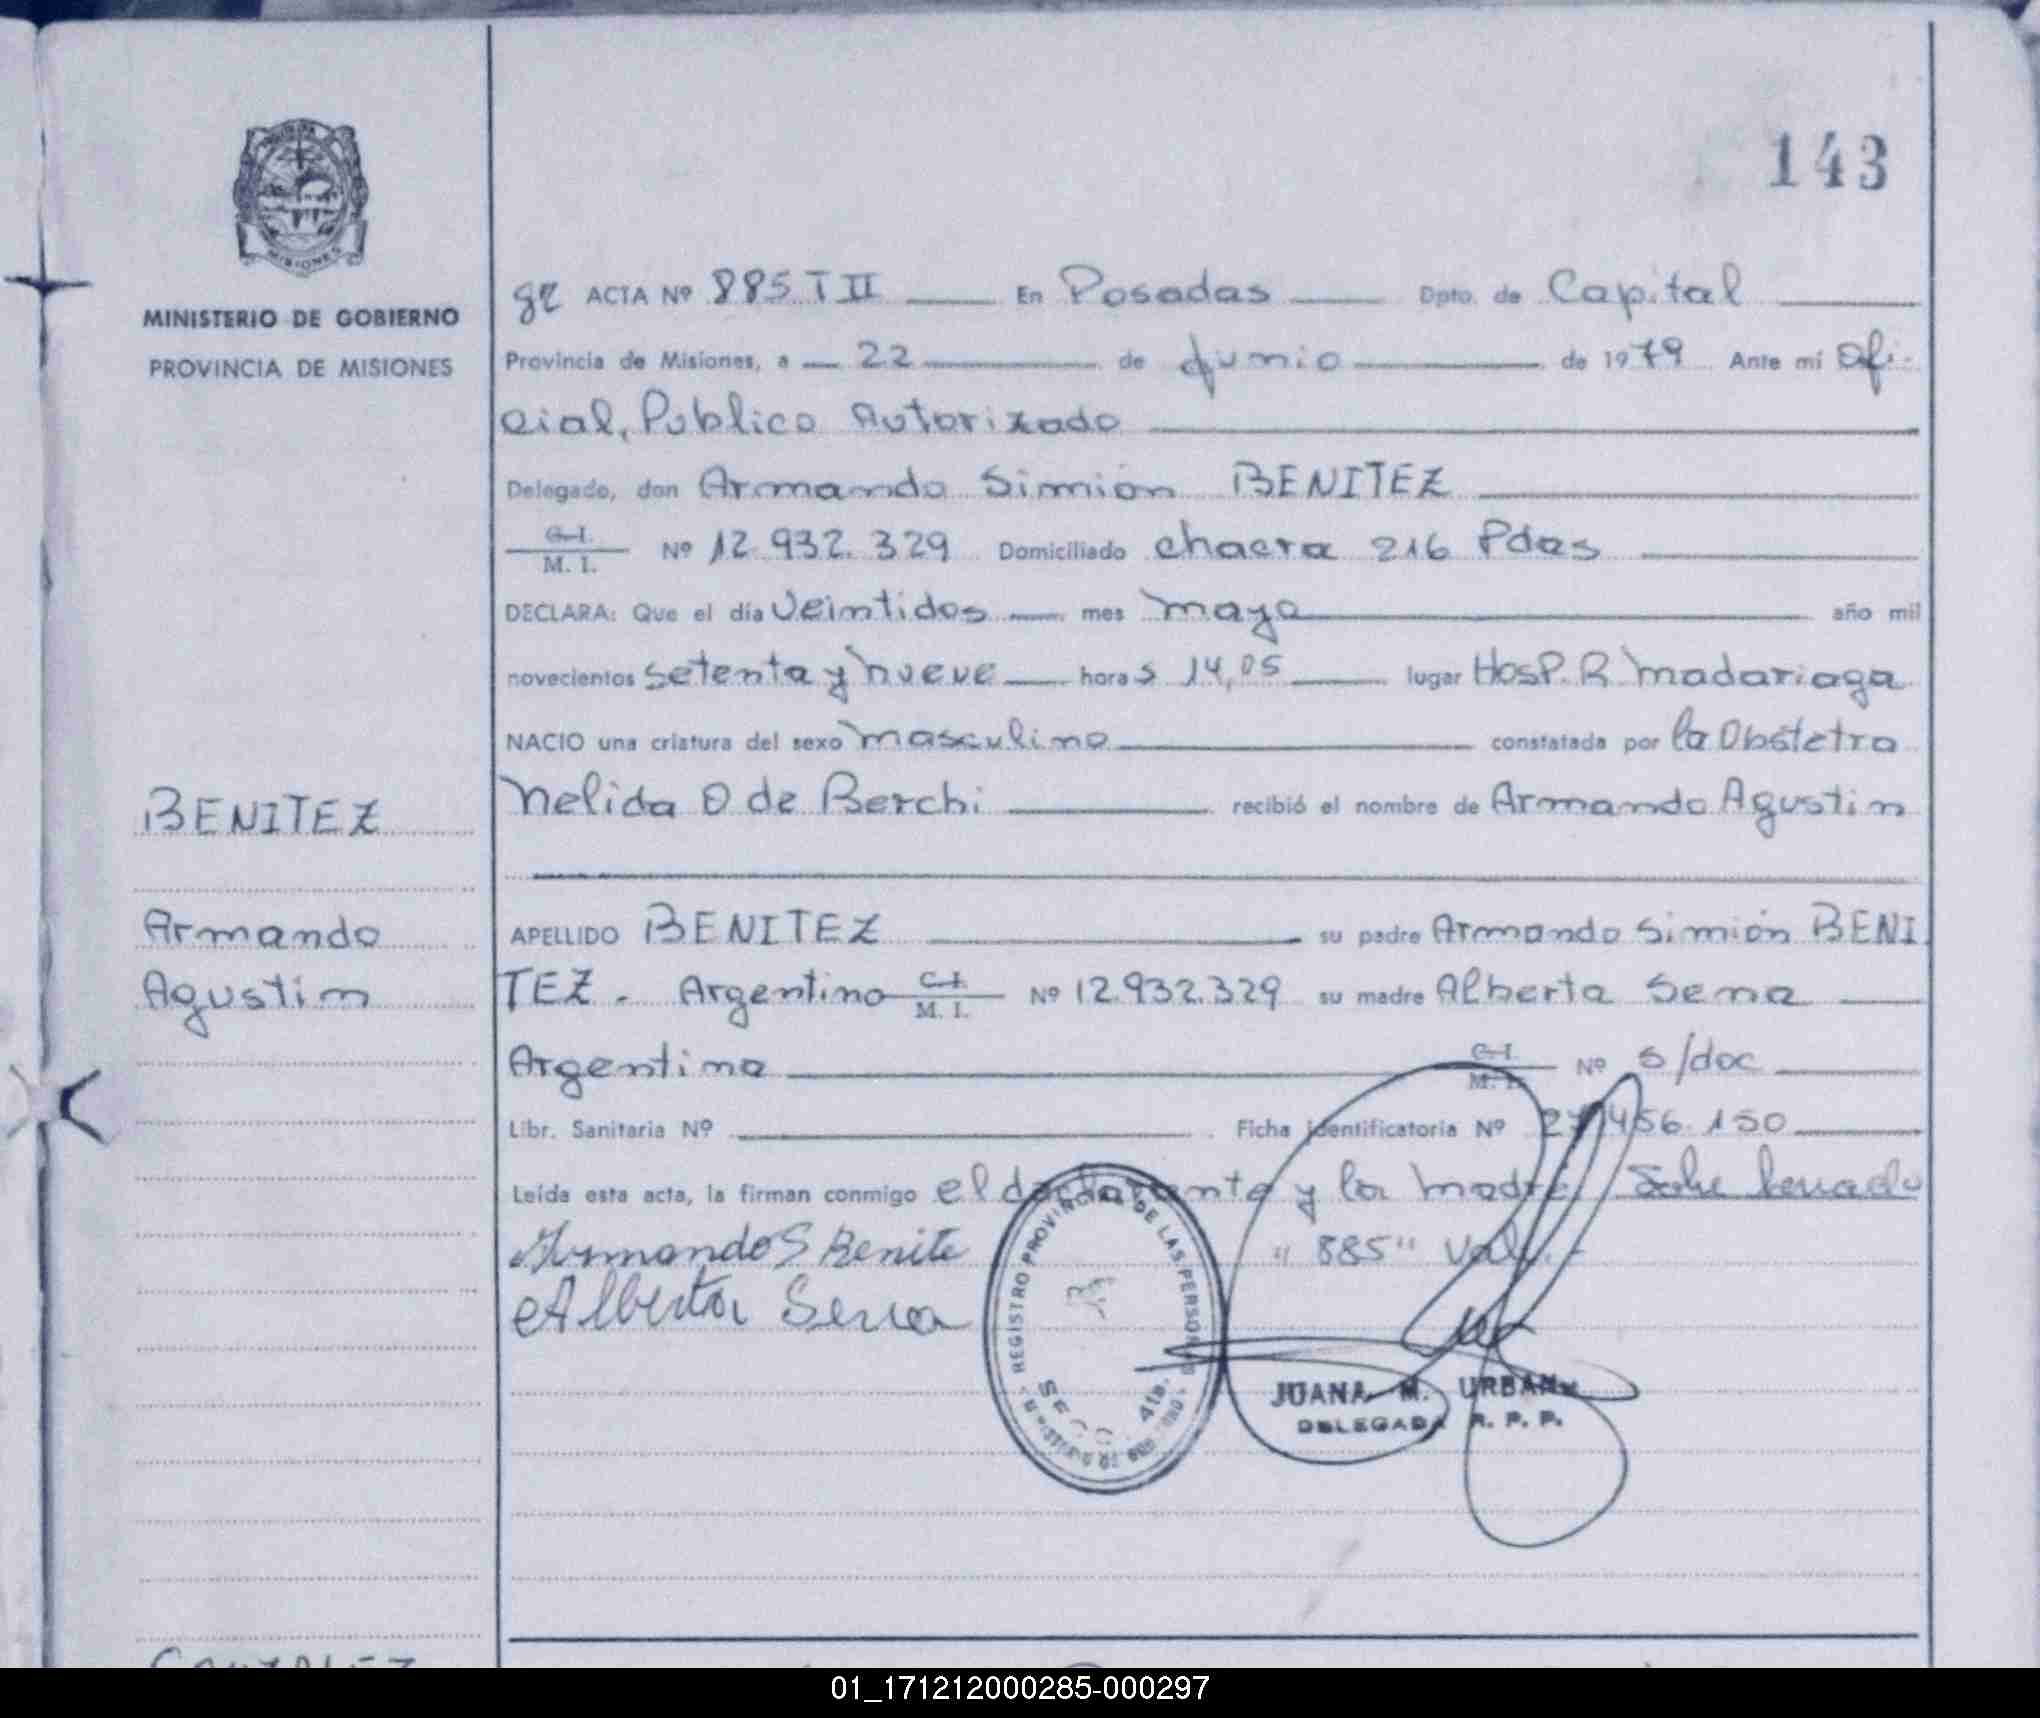 143
MISIONES
MINISTERIO DE GOBIERNO
PROVINCIA DE MISIONES
BENITEZ
Armando
Agustin
ACTA Nº 885 T II En Posadas Dpto. de Capital
Provincia de Misiones, a 22 de Junio de 1979 Ante mí Ofi-
cial, Publico Autorizado
Delegado, don Armando Simión BENITEZ
C.I.
M. I. Nº 12.932.329 Domiciliado chacra 216 Pdas
DECLARA: Que el día Veintidos mes mayo año mil
novecientos setenta y nueve horas 14,05 lugar Hosp. R Madariaga
NACIO una criatura del sexo masculino constatada por la Obstetra
Nelida O de Berchi recibió el nombre de Armando Agustin
APELLIDO BENITEZ su padre Armando Simión BENI
TEZ. Argentino C.I.
M. I. Nº 12.932.329 su madre Alberta Sena
Argentina C.I.
M. I. Nº s/doc
Libr. Sanitaria Nº Ficha identificatoria Nº 27.456.150
Leída esta acta, la firman conmigo el declarante y la madre. Sobre
Armando S Benite "885" Vale.-
Alberta Sena
REGISTRO PROVINCIAL DE LAS PERSONAS
SECC. 4ta.
JUANA M. URBAN
DELEGADA R. P. P.
01_171212000285-000297